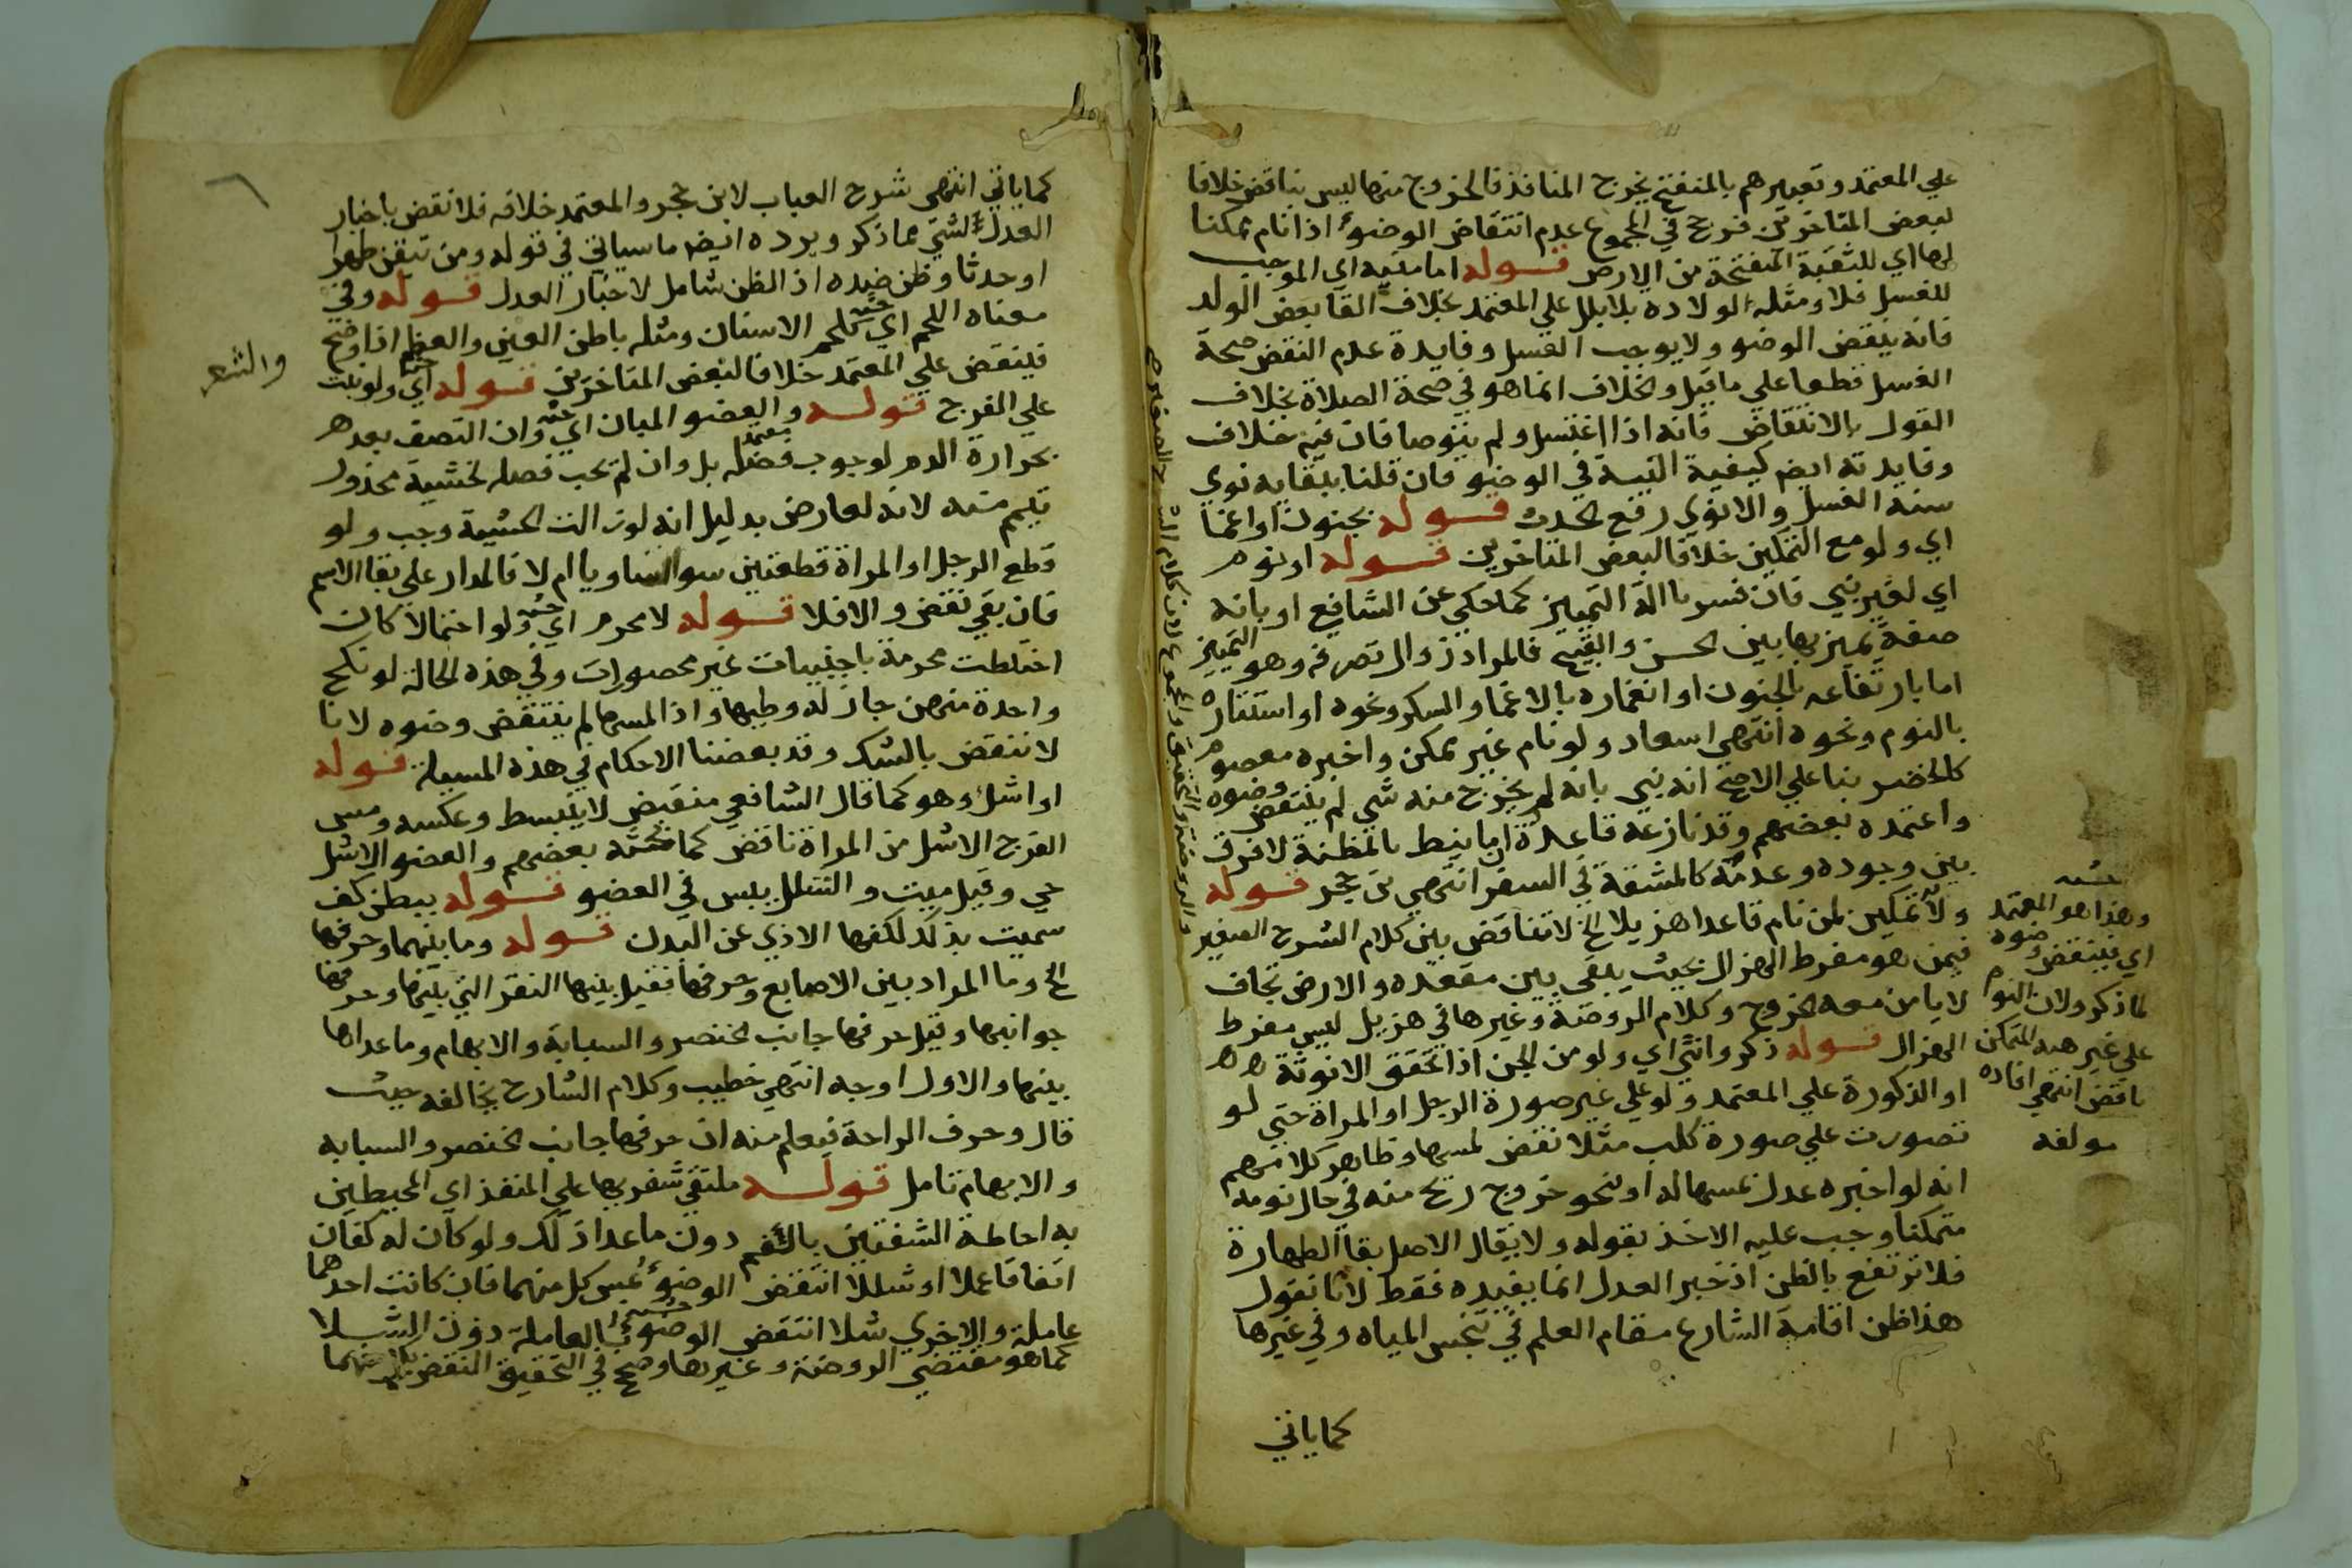 علي المعتمد وتعبيرهم بالمنفتح يخرج المنافذ فالخروج منها ليس بناقض خلافا
لبعض المتاخرين فرع في المجموع عدم انتقاض الوضوء اذا نام ممكنا
لها اي للثقبة المنفتحة من الارض قوله اما منيه اي الموجب
للغسل فلا ومثله الولادة بلا بلل علي المعتمد بخلاف القا بعض الولد
فانه ينقض الوضو ولا يوجب الغسل وفايدة عدم النقض صحة
الغسل قطعا علي ما قيل والخلاف انما هو في صحة الصلاة بخلاف
القول بالانتقاض فانه اذا اغتسل ولم يتوضا فان فيه خلاف
وفايدته ايض كيفية النية في الوضو فان قلنا ببقايه نوي
سنة الغسل والا نوي رفع الحدث قوله بجنون او اغما
اي ولو مع التمكين خلافا لبعض المتاخرين قوله او نوم
اي لغير نبي فان فسر بالة التمييز كما حكي عن الشافعي او بانه
صفة يميز بها بين الحسن والقبيح فالمراد زوال تصرفه وهو التمييز
اما بارتفاعه بالجنون او انغماره بالاغما والسكر ونحوه او استتاره
بالنوم ونحوه انتهي اسعاد ولو نام غير ممكن واخبره معصوم
كالخضر بنا علي الاصح انه نبي بانه لم يخرج منه شي لم ينتقض وضوه
واعتمده بعضهم وقد نازعه قاعدة ان ما ينط بالمظنة لا فرق
بين وجوده وعدمه كالمشقة في السفر انتهي بن حجر قوله
ولا تمكين لمن نام قاعدا هزيلا الخ لا تناقض بين كلام الشرح الصغير
فيمن هو مفرط الهزال بحيث يبقي بين مقعده والارض تجاف
لا يامن معه الخروج وكلام الروضة وغيرها في هزيل ليس مفرط
الهزال قوله ذكر وانثي اي ولو من الجن اذا تحقق الانوثة
او الذكورة علي المعتمد ولو علي غير صورة الرجل او المراة حتي لو
تصورت علي صورة كلب مثلا نقض لمسها وظاهر كلامهم
انه لو اخبره عدل بمسها له او بنحو خروج ريح منه في حال نومه
متمكنا وجب عليه الاخذ بقوله ولا يقال الاصل بقا الطهارة
فلا ترتفع بالظن اذ خبر العدل انما يفيده فقط لانا نقول
هذا ظن اقامة الشارع مقام العلم في تنجس المياه وفي غيرها
كما ياتي
وهذا هو المعتمد
اي فينتقض وضوه
لما ذكر ولان النوم
علي غير هيه المتمكن
ناقض انتهي افاده
مولفه
كما ياتي انتهي شرح العباب لابن حجر والمعتمد خلافه فلا نقض باخبار
العدل لشي مما ذكر ويرده ايض ما سياتي في قوله ومن تيقن طهرا
او حدثا وظن ضده اذ الظن شامل لاخبار العدل قوله وفي
معناه اللحم اي كلحم الاسنان ومثله باطن العين والعظم اذا وضح
فينقض علي المعتمد خلافا لبعض المتاخرين قوله اي ولو نبت
علي الفرج قوله والعضو المبان اي وان التصق بعد
بحرارة الدم لوجوب فصله بل وان لم يجب فصله لخشية محذور
تيمم منه لانه لعارض بدليل انه لو زالت الخشية وجب ولو
قطع الرجل او المراة قطعتين سوا تساويا ام لا فالمدار علي بقا الاسم
فان بقي نقض والا فلا قوله لا محرم اي ولو احتمالا كان
اختلطت محرمة باجنبيات غير محصورات وفي هذه الحالة لو نكح
واحدة منهن جاز له وطيها واذا لمسها لم ينتقض وضوه لانا
لا ننقض بالشك وقد بعضنا الاحكام في هذه المسيلة قوله
او اشل وهو كما قال الشافعي منقبض لا ينبسط وعكسه ومس
الفرج الاشل من المراة ناقض كما بحثه بعضهم والعضو الاشل
حي وقيل ميت والشلل يبس في العضو قوله ببطن كف
سميت بذلك لكفها الاذي عن البدن قوله وما بينهما وحرفها
الخ وما المراد بين الاصابع وحرفها فقيل بينها النقر التي بينها وحرفها
جوانبها وقيل حرفها جانب الخنصر والسبابة والابهام وما عداها
بينها والاول اوجه انتهي خطيب وكلام الشارح يخالفه حيث
قال وحرف الراحة فيعلم منه ان حرفها جانب الخنصر والسبابه
والابهام تامل قوله ملتقي شفريها علي المنفذ اي المحيطين
به احاطة الشفتين بالفم دون ما عدا ذلك ولو كان له كفان
اتفاقا عملا او شللا انتقض الوضوء بمس كل منهما فان كانت احدهما
عاملة والاخري شلا انتقض الوضوء بالعاملة دون الشلا
كما هو مقتضي الروضة وغيرها وصح في التحقيق النقض بكل منهما
والشعر